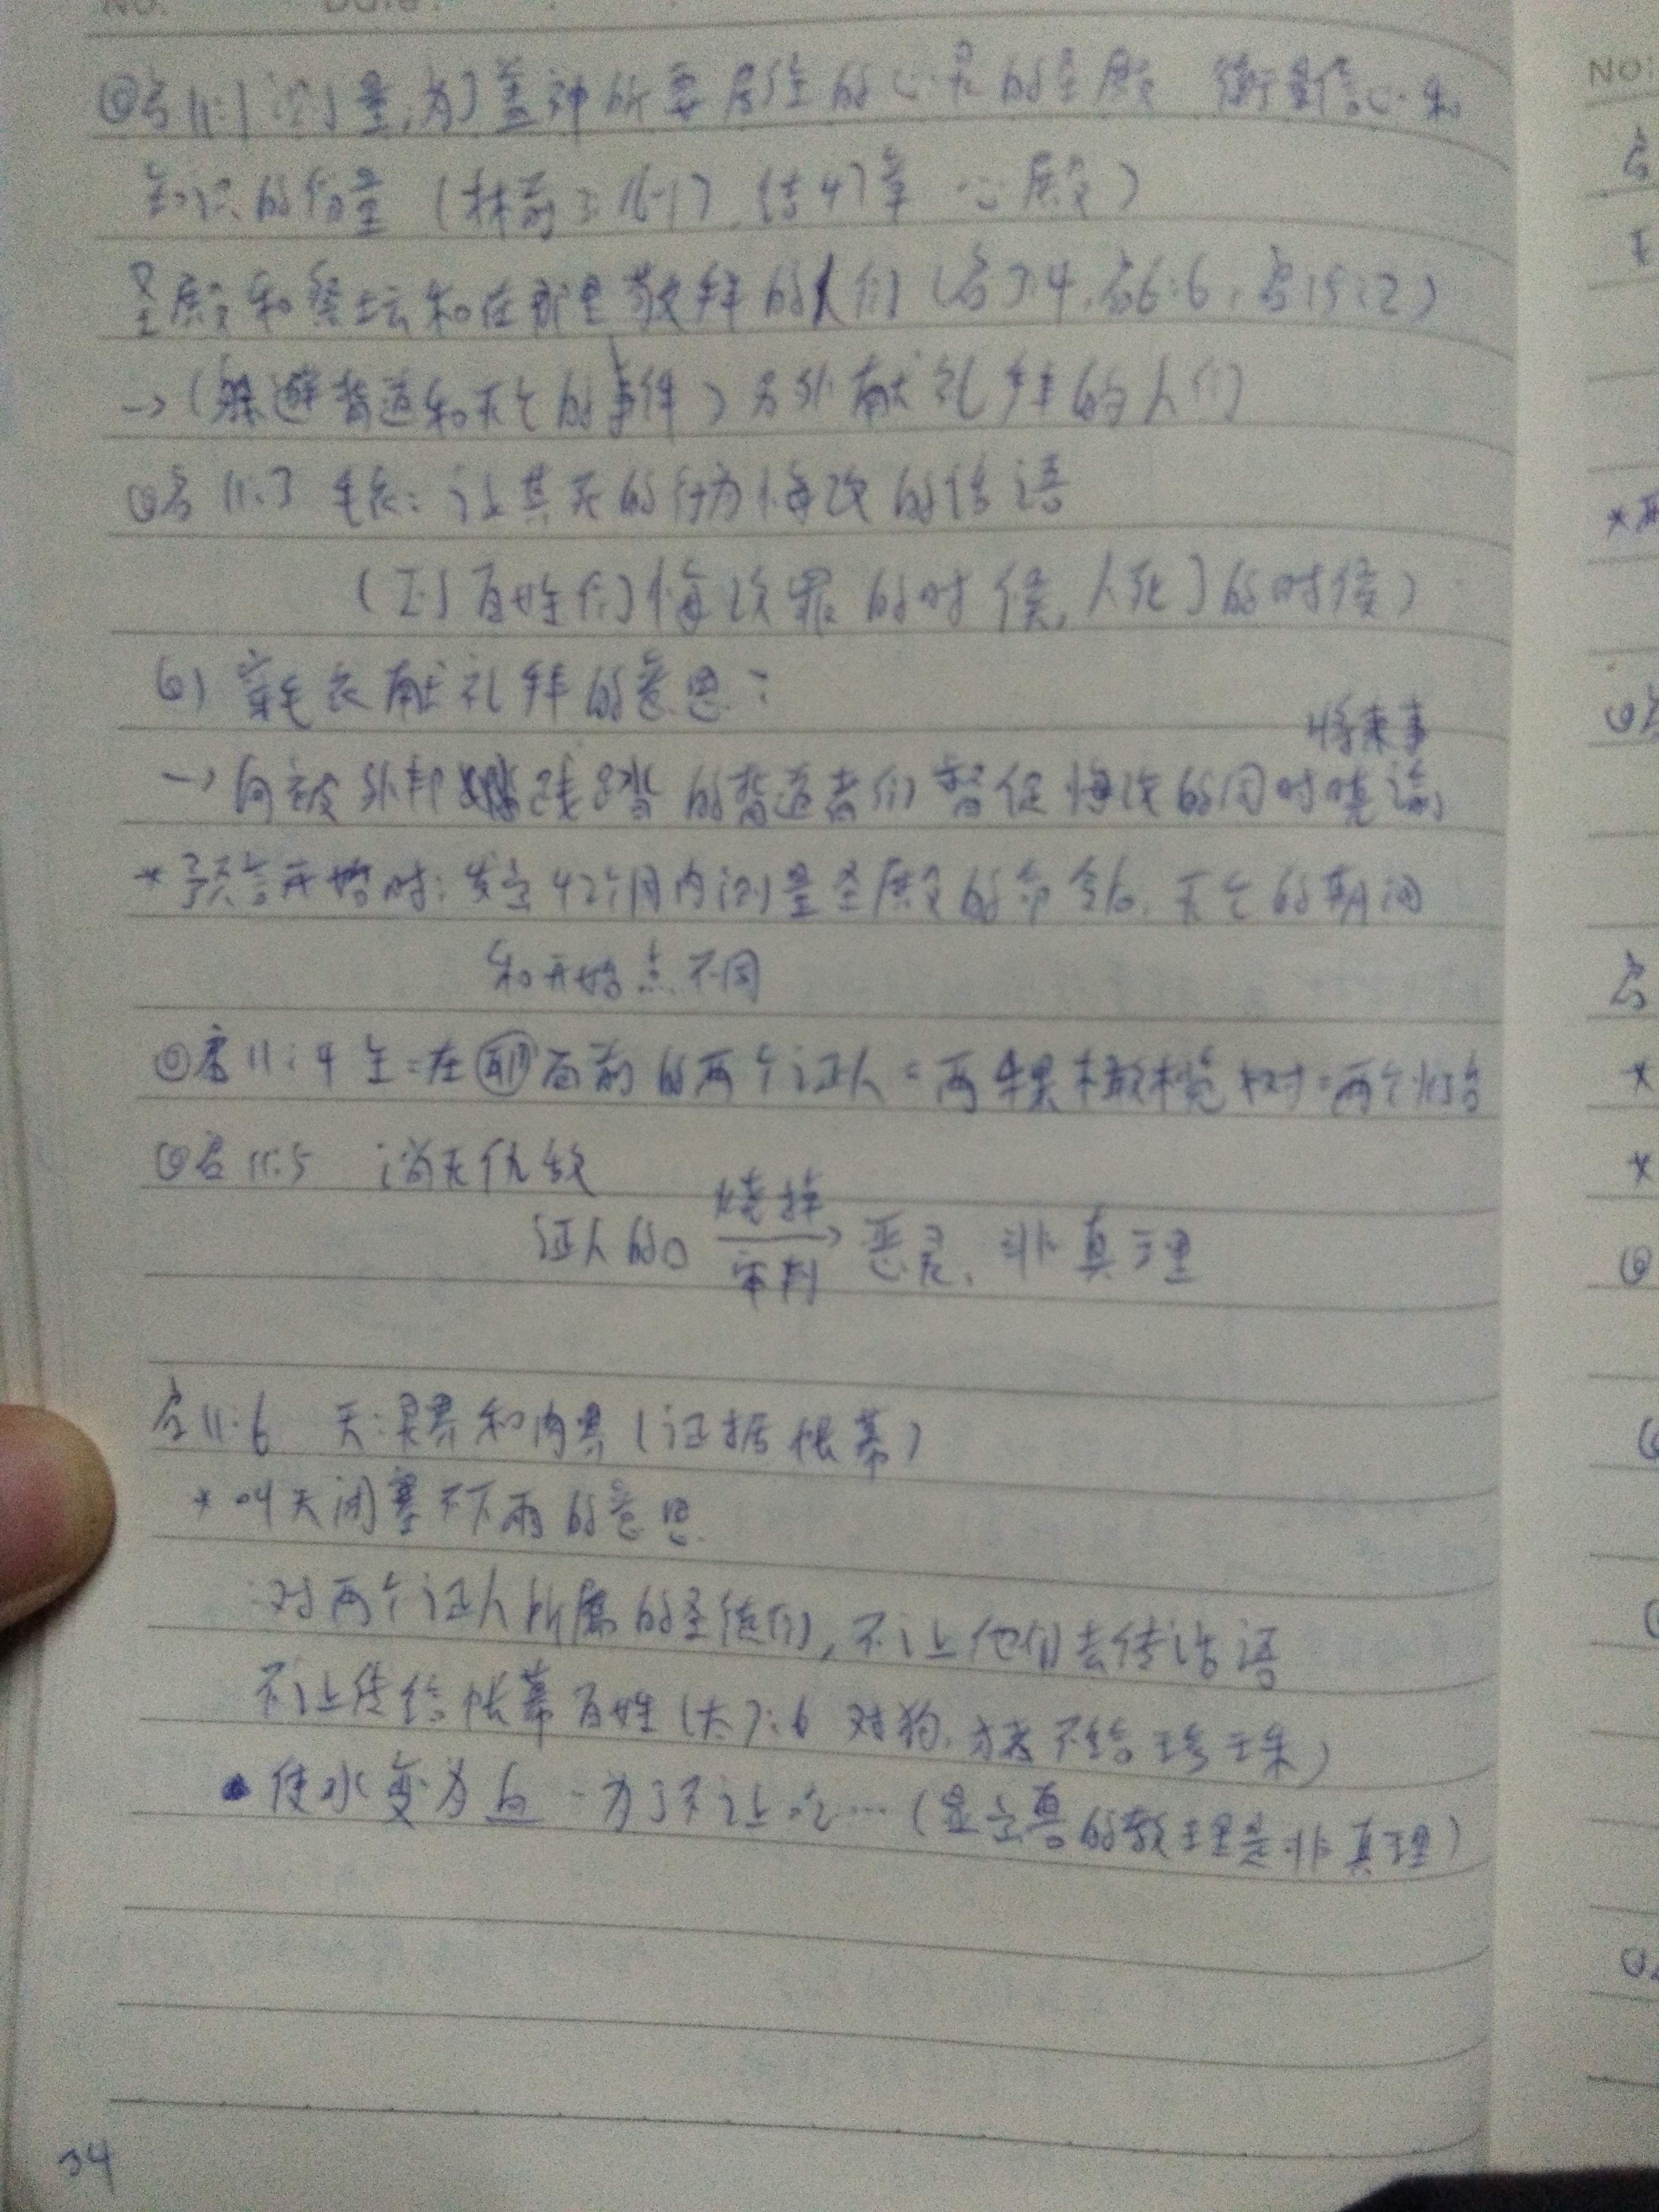 NO: Date:
◎启11:1 测量:为了盖神所要居住的心灵的圣殿 衡量信心和
知识的份量 (林前3:16-17, 结47章 心殿)
圣殿和祭坛和在那里敬拜的人们 (启7:4, 启6:6, 启15:2)
→(躲避背道和灭亡的事件) 另外献礼拜的人们
◎启11:3 毛衣: 让其灭的行为悔改的话语
(到百姓们悔改罪的时候, 人死了的时候)
6) 穿毛衣献礼拜的意思:
将来事
→向被外邦践踏的背道者们督促悔改的同时晓谕
*预言开始时: 发定42个月内测量圣殿的命令后, 灭亡的期间
和开始点不同
◎启11:4 主=在耶面前的两个证人=两棵橄榄树=两个灯台
◎启11:5 消灭仇敌
烧掉
证人的口 → 恶灵、非真理
审判
启11:6 天:灵界和肉界(证据帐幕)
*叫天闭塞不下雨的意思
:对两个证人所属的圣徒们,不让他们去传话语
不让传给帐幕百姓(太7:6 对狗、猪不给珍珠)
•使水变为血 - 为了不让吃…(显立兽的教理是非真理)
34
NO: